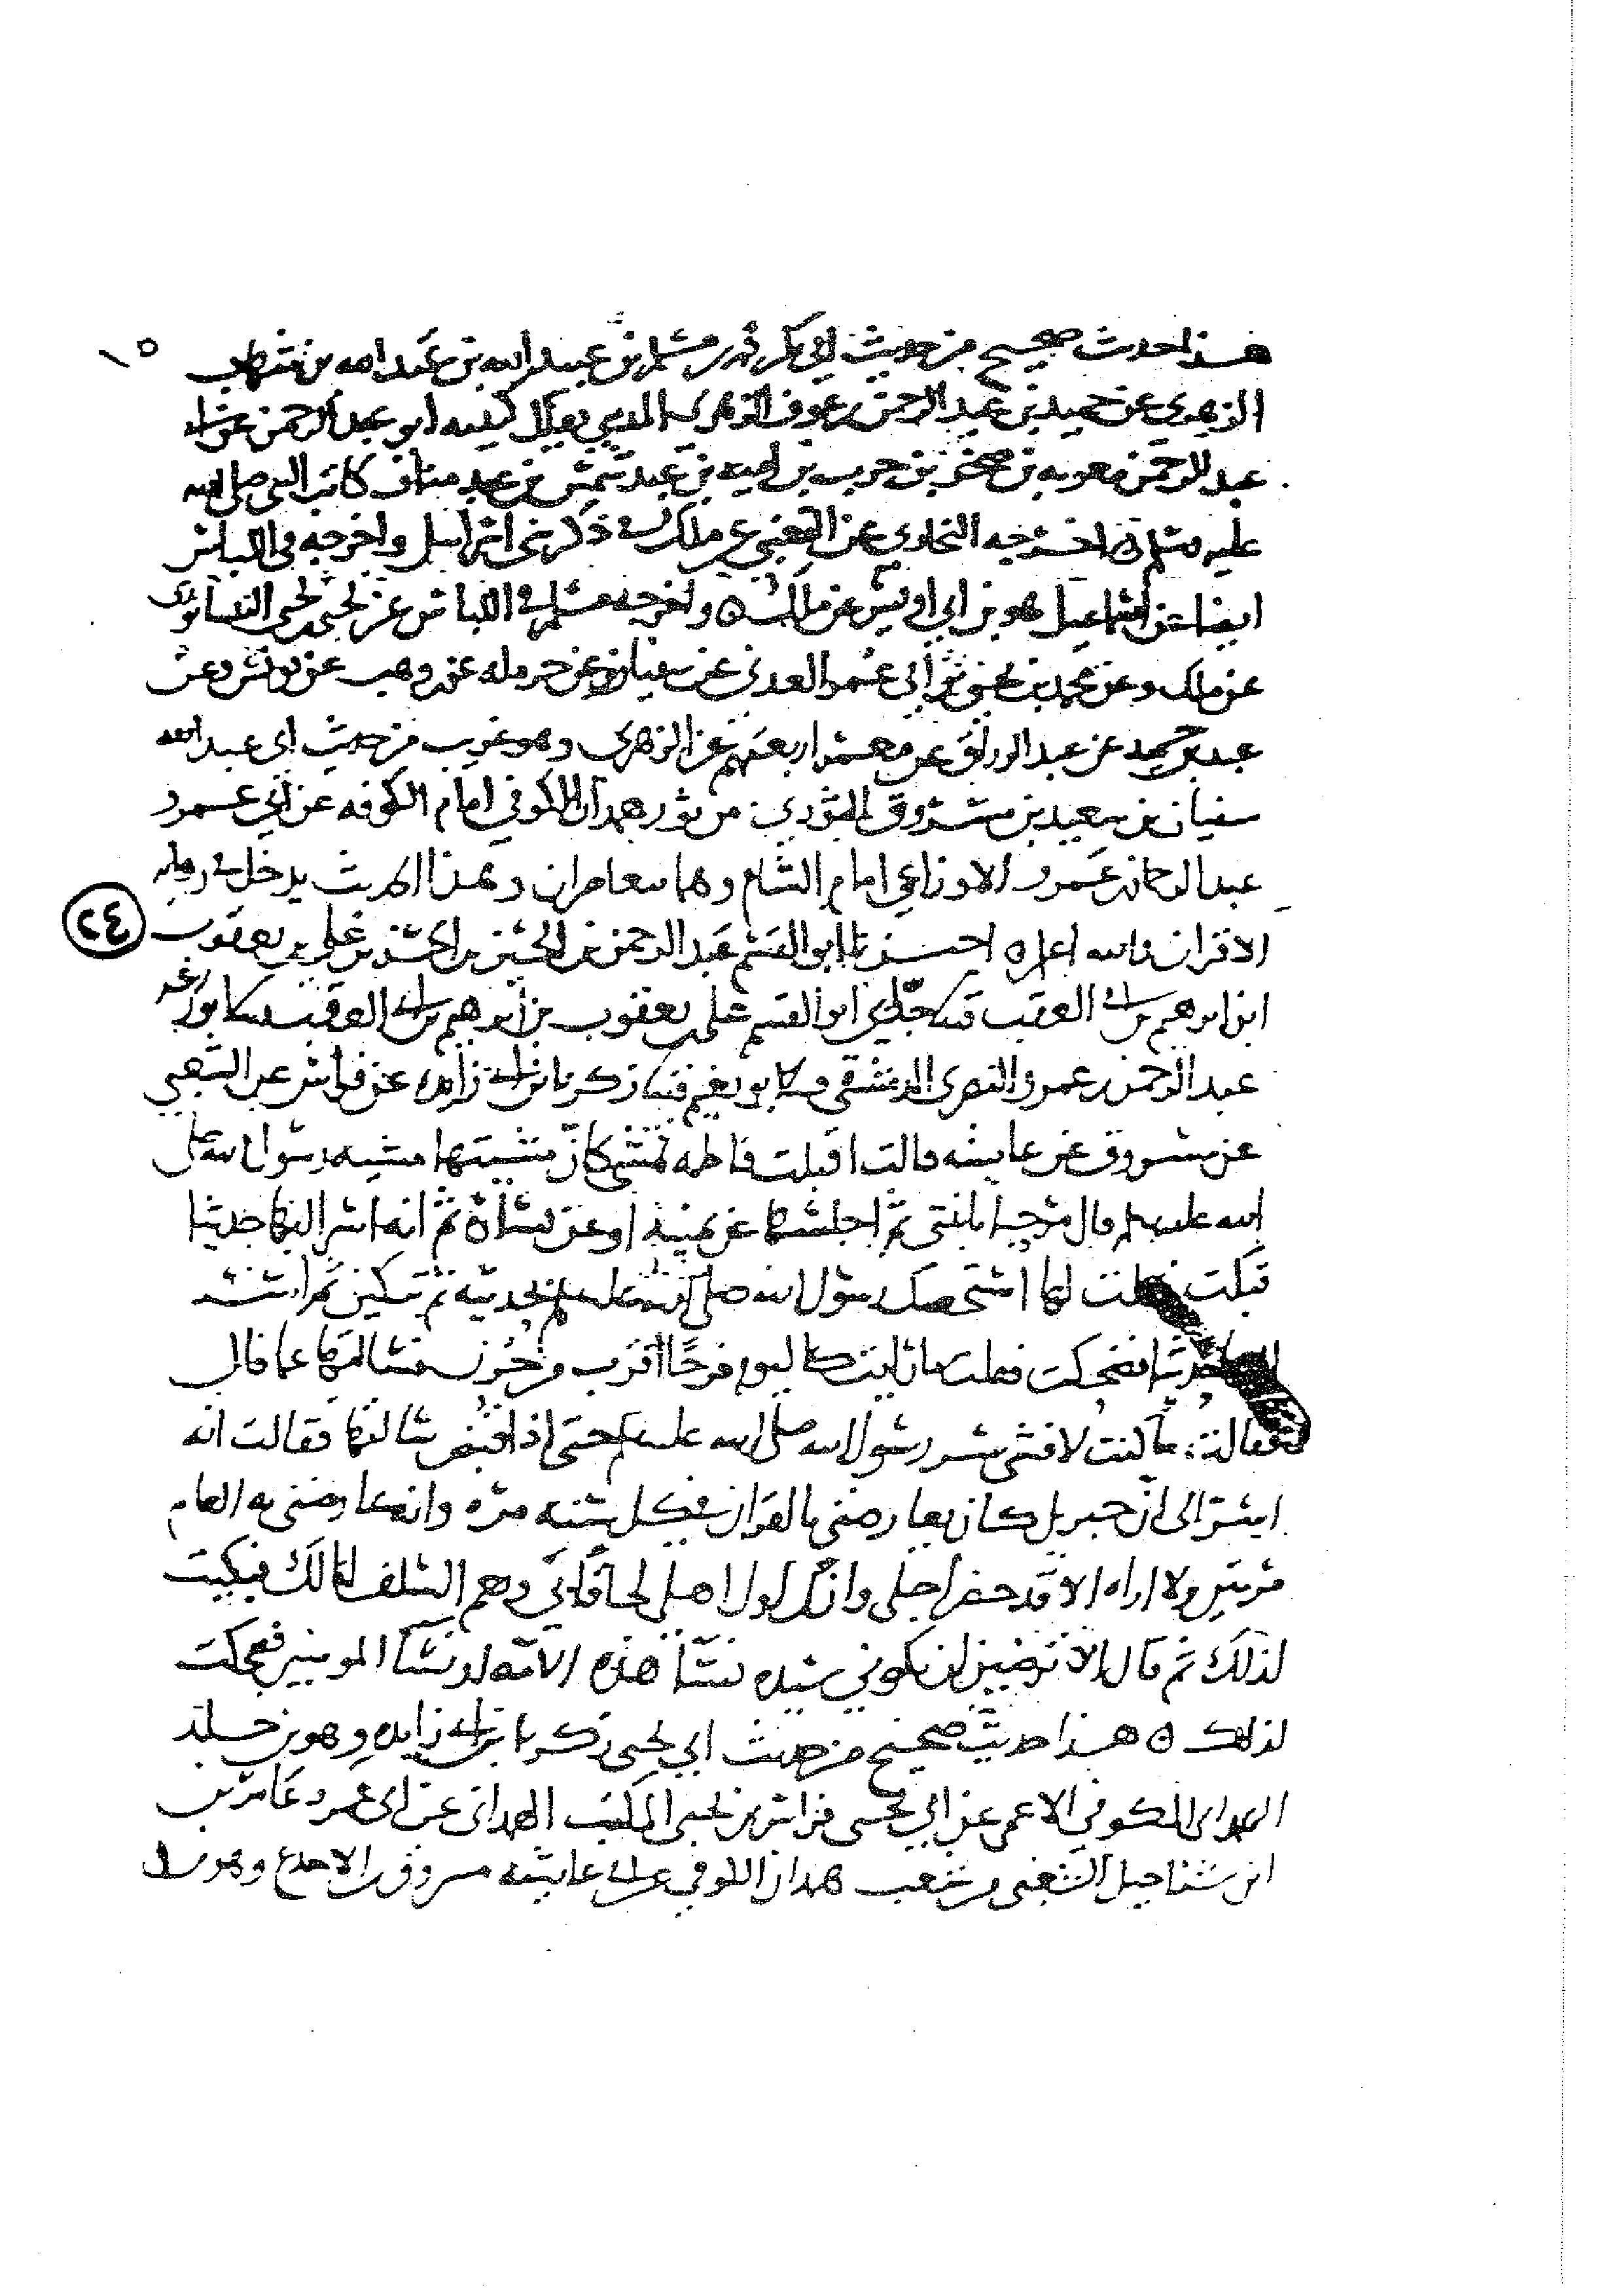 ١٥
هذا حديث صحيح من حديث ابي بكر محمد بن مسلم بن عبيد الله بن عبد الله بن شهاب
الزهري عن حميد بن عبد الرحمن بن عوف الزهري المدني يقال كنيته ابو عبد الرحمن عن ابي
عبد الرحمن معويه بن صخر بن حرب بن اميه بن عبد شمس بن عبد مناف كاتب النبي صلى الله
عليه وسلم اخرجه البخاري عن القعنبي عن ملك في ذكر بني اسرائيل واخرجه في اللباس
ايضا عن اسماعيل هو بن ابي اويس عن ملك ه واخرجه مسلم في اللباس عن يحيى بن يحيى النيسابوري
عن ملك وعن محمد بن يحيى بن ابي عمر العدني عن سفيان وعن حرمله عن وهب عن يونس وعن
عبد بن حميد عن عبد الرزاق عن معمر اربعتهم عن الزهري وهو غريب من حديث ابي عبد الله
سفيان بن سعيد بن مسروق الثوري من ثور همدان الكوفي امام الكوفه عن ابي عمرو
عبد الرحمان بن عمرو الاوزاعي امام الشام وهما متعاصران وهذا الحديث يدخل في روايه
٢٤
الاقران والله اعلم ه اخبرنا ابو القسم عبد الرحمن بن الحسين بن الحسن بن علي بن يعقوب
ابن ابرهيم بن ابي العقب جدي ابو القسم علي بن يعقوب بن ابرهيم بن ابي العقب ابو زرعه
عبد الرحمن بن عمرو النصري الدمشقي ابو نعيم زكريا بن ابي زايده عن فراس عن الشعبي
عن مسروق عن عايشه قالت اقبلت فاطمه تمشي كان مشيتها مشيه رسول الله صلى
الله عليه وسلم قال مرحبا يابنتي ثم اجلسها عن يمينه او عن يساره ثم انه اسر اليها حديثا
فبكت فقلت لها استخصك رسول الله صلى الله عليه وسلم بحديثه ثم تبكين ثم اسر
اليها حديثا فضحكت فقلت ما رايت كاليوم فرحا اقرب من حزن فسالتها عما قال
فقالت ما كنت لافشي سر رسول الله صلى الله عليه وسلم حتى اذا قبض سالتها فقالت انه
اسر الي ان جبريل كان يعارضني بالقران في كل سنه مره وانه عارضني به العام
مرتين ولا اراه الا قد حضر اجلي وانك اول اهلي لحاقا بي ونعم السلف انا لك فبكيت
لذلك ثم قال الا ترضين ان تكوني سيده نسا هذه الامه او نسا المومنين فضحكت
لذلك ه هذا حديث صحيح من حديث ابي يحيى زكريا بن ابي زايده وهو بن خالد
الهمداني الكوفي الاعمى عن ابي يحيى فراس بن يحيى المكتب الهمداني عن ابي عمرو عامر بن
ابن شراحيل الشعبي من شعب همدان الكوفي عن ابي عايشه مسروق بن الاجدع وهو